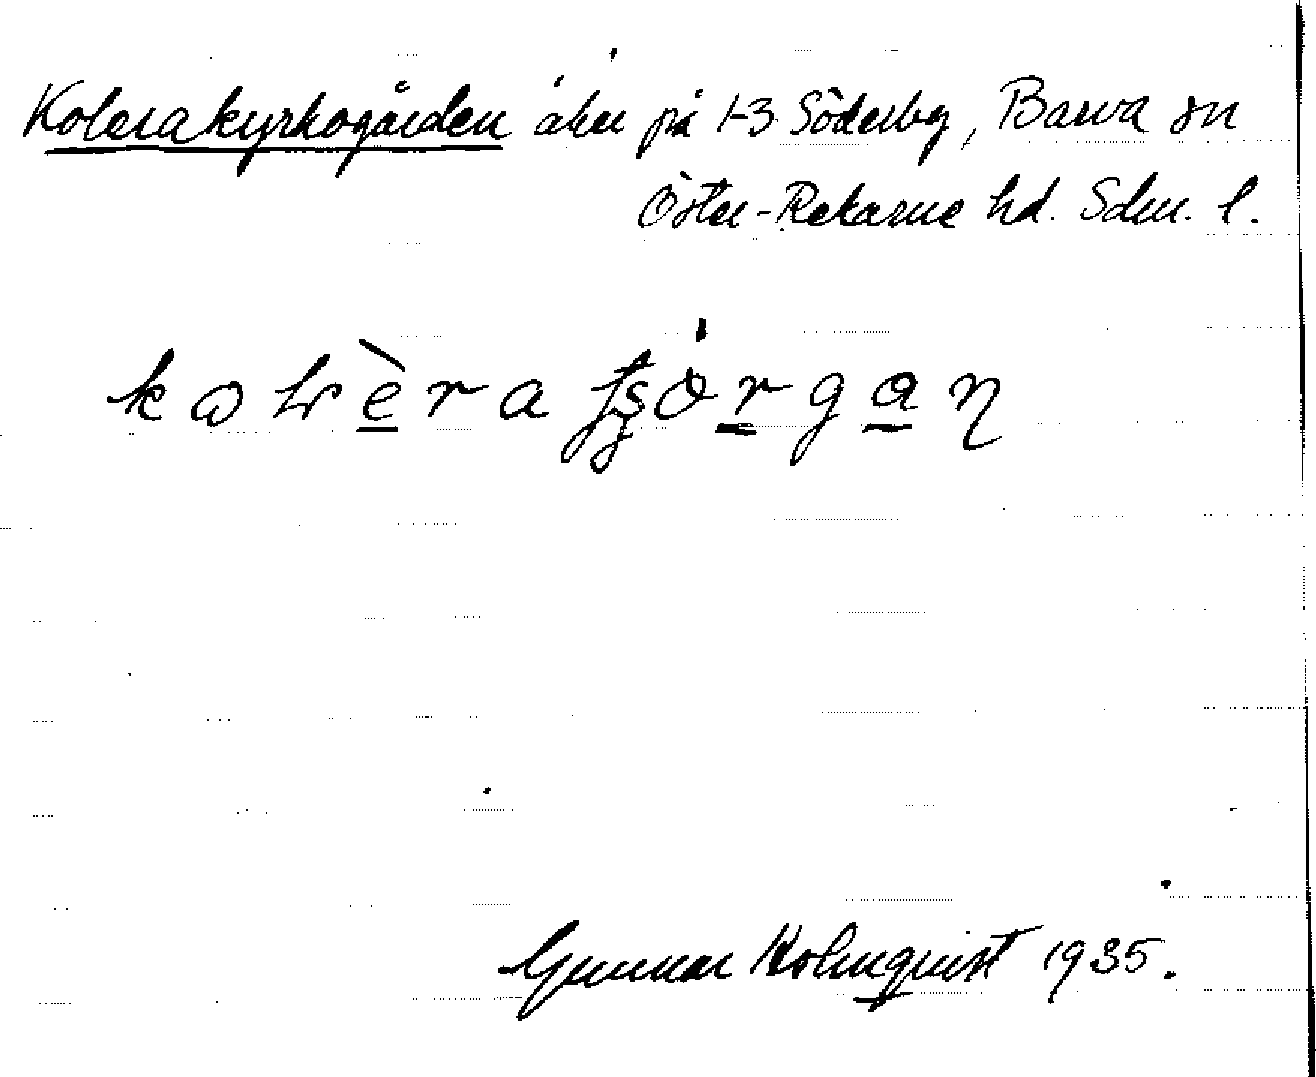 Kolerakyrkogården åker på 1-3 Söderby, Barva sn
Öster-Rekarne hd. Sdm. l.
Gunnar Holmquist 1935.